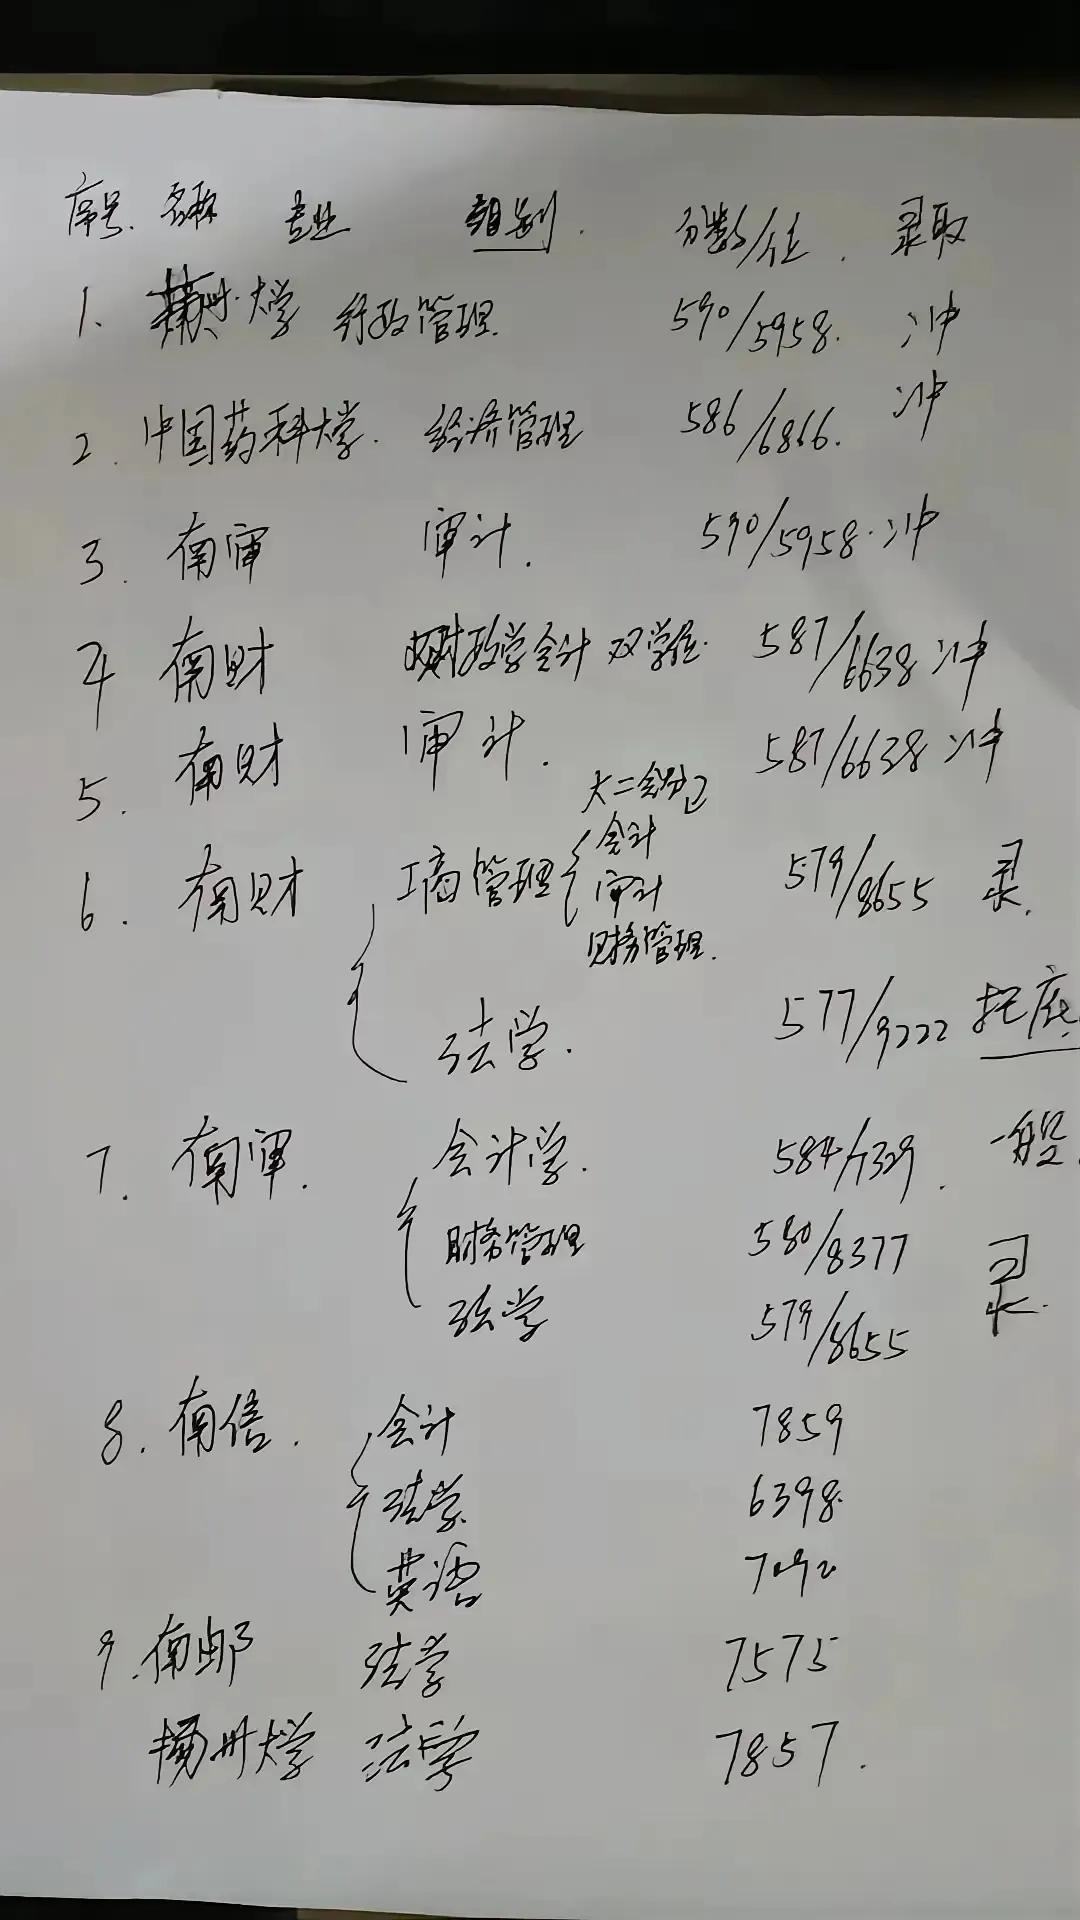 序号. 名称 专业 组别. 分数/位. 录取
1. 大学 行政管理. 590/5958. 冲
2. 中国药科大学. 经济管理 586/6866. 冲
3. 南审 审计. 590/5958. 冲
4 南财 财政学会计 双学位. 587/6638 冲
5. 南财 审计. 587/6638 冲
大二会分口
6. 南财 工商管理 会计 579/8655 录.
审计
财务管理.
法学. 577/9222 托底
7. 南审. 会计学. 584/7329. 一般.
财务管理 580/8377
录.
法学 579/8655
8. 南信. 会计 7859
法学. 6398.
英语 7092
9. 南邮 法学 7575
扬州大学 法学 7857.